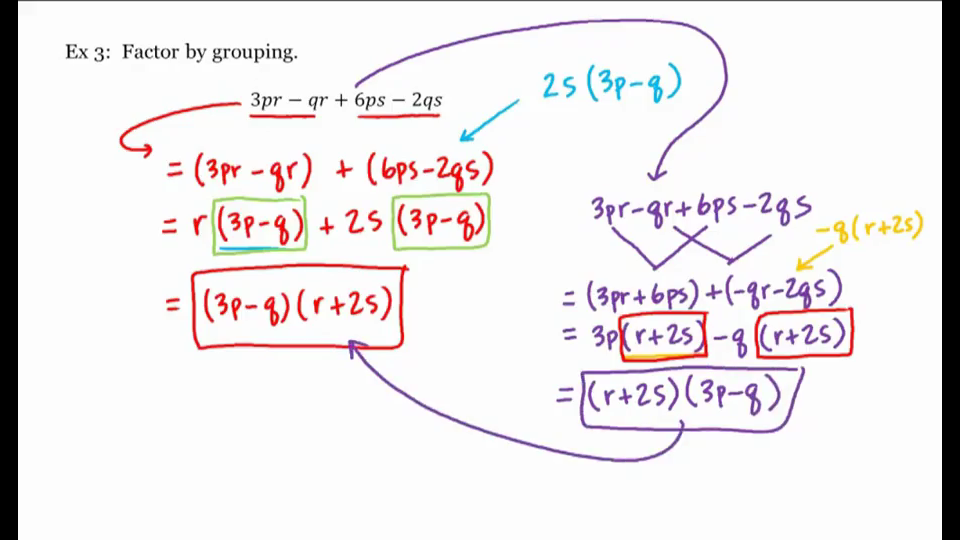 Ex 3: Factor by grouping.
3pr − qr + 6ps − 2qs
2s (3p-q)
= (3pr - qr) + (6ps-2qs)
= r (3p-q) + 2s (3p-q)
= (3p-q) (r+2s)
3pr-qr+6ps-2qs
-q(r+2s)
= (3pr+6ps)+(-qr-2qs)
= 3p(r+2s) -q (r+2s)
= (r+2s)(3p-q)